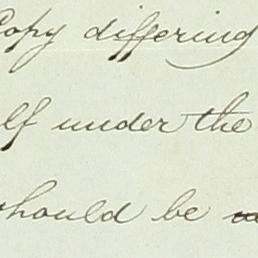 Copy differing
lf under the
should be